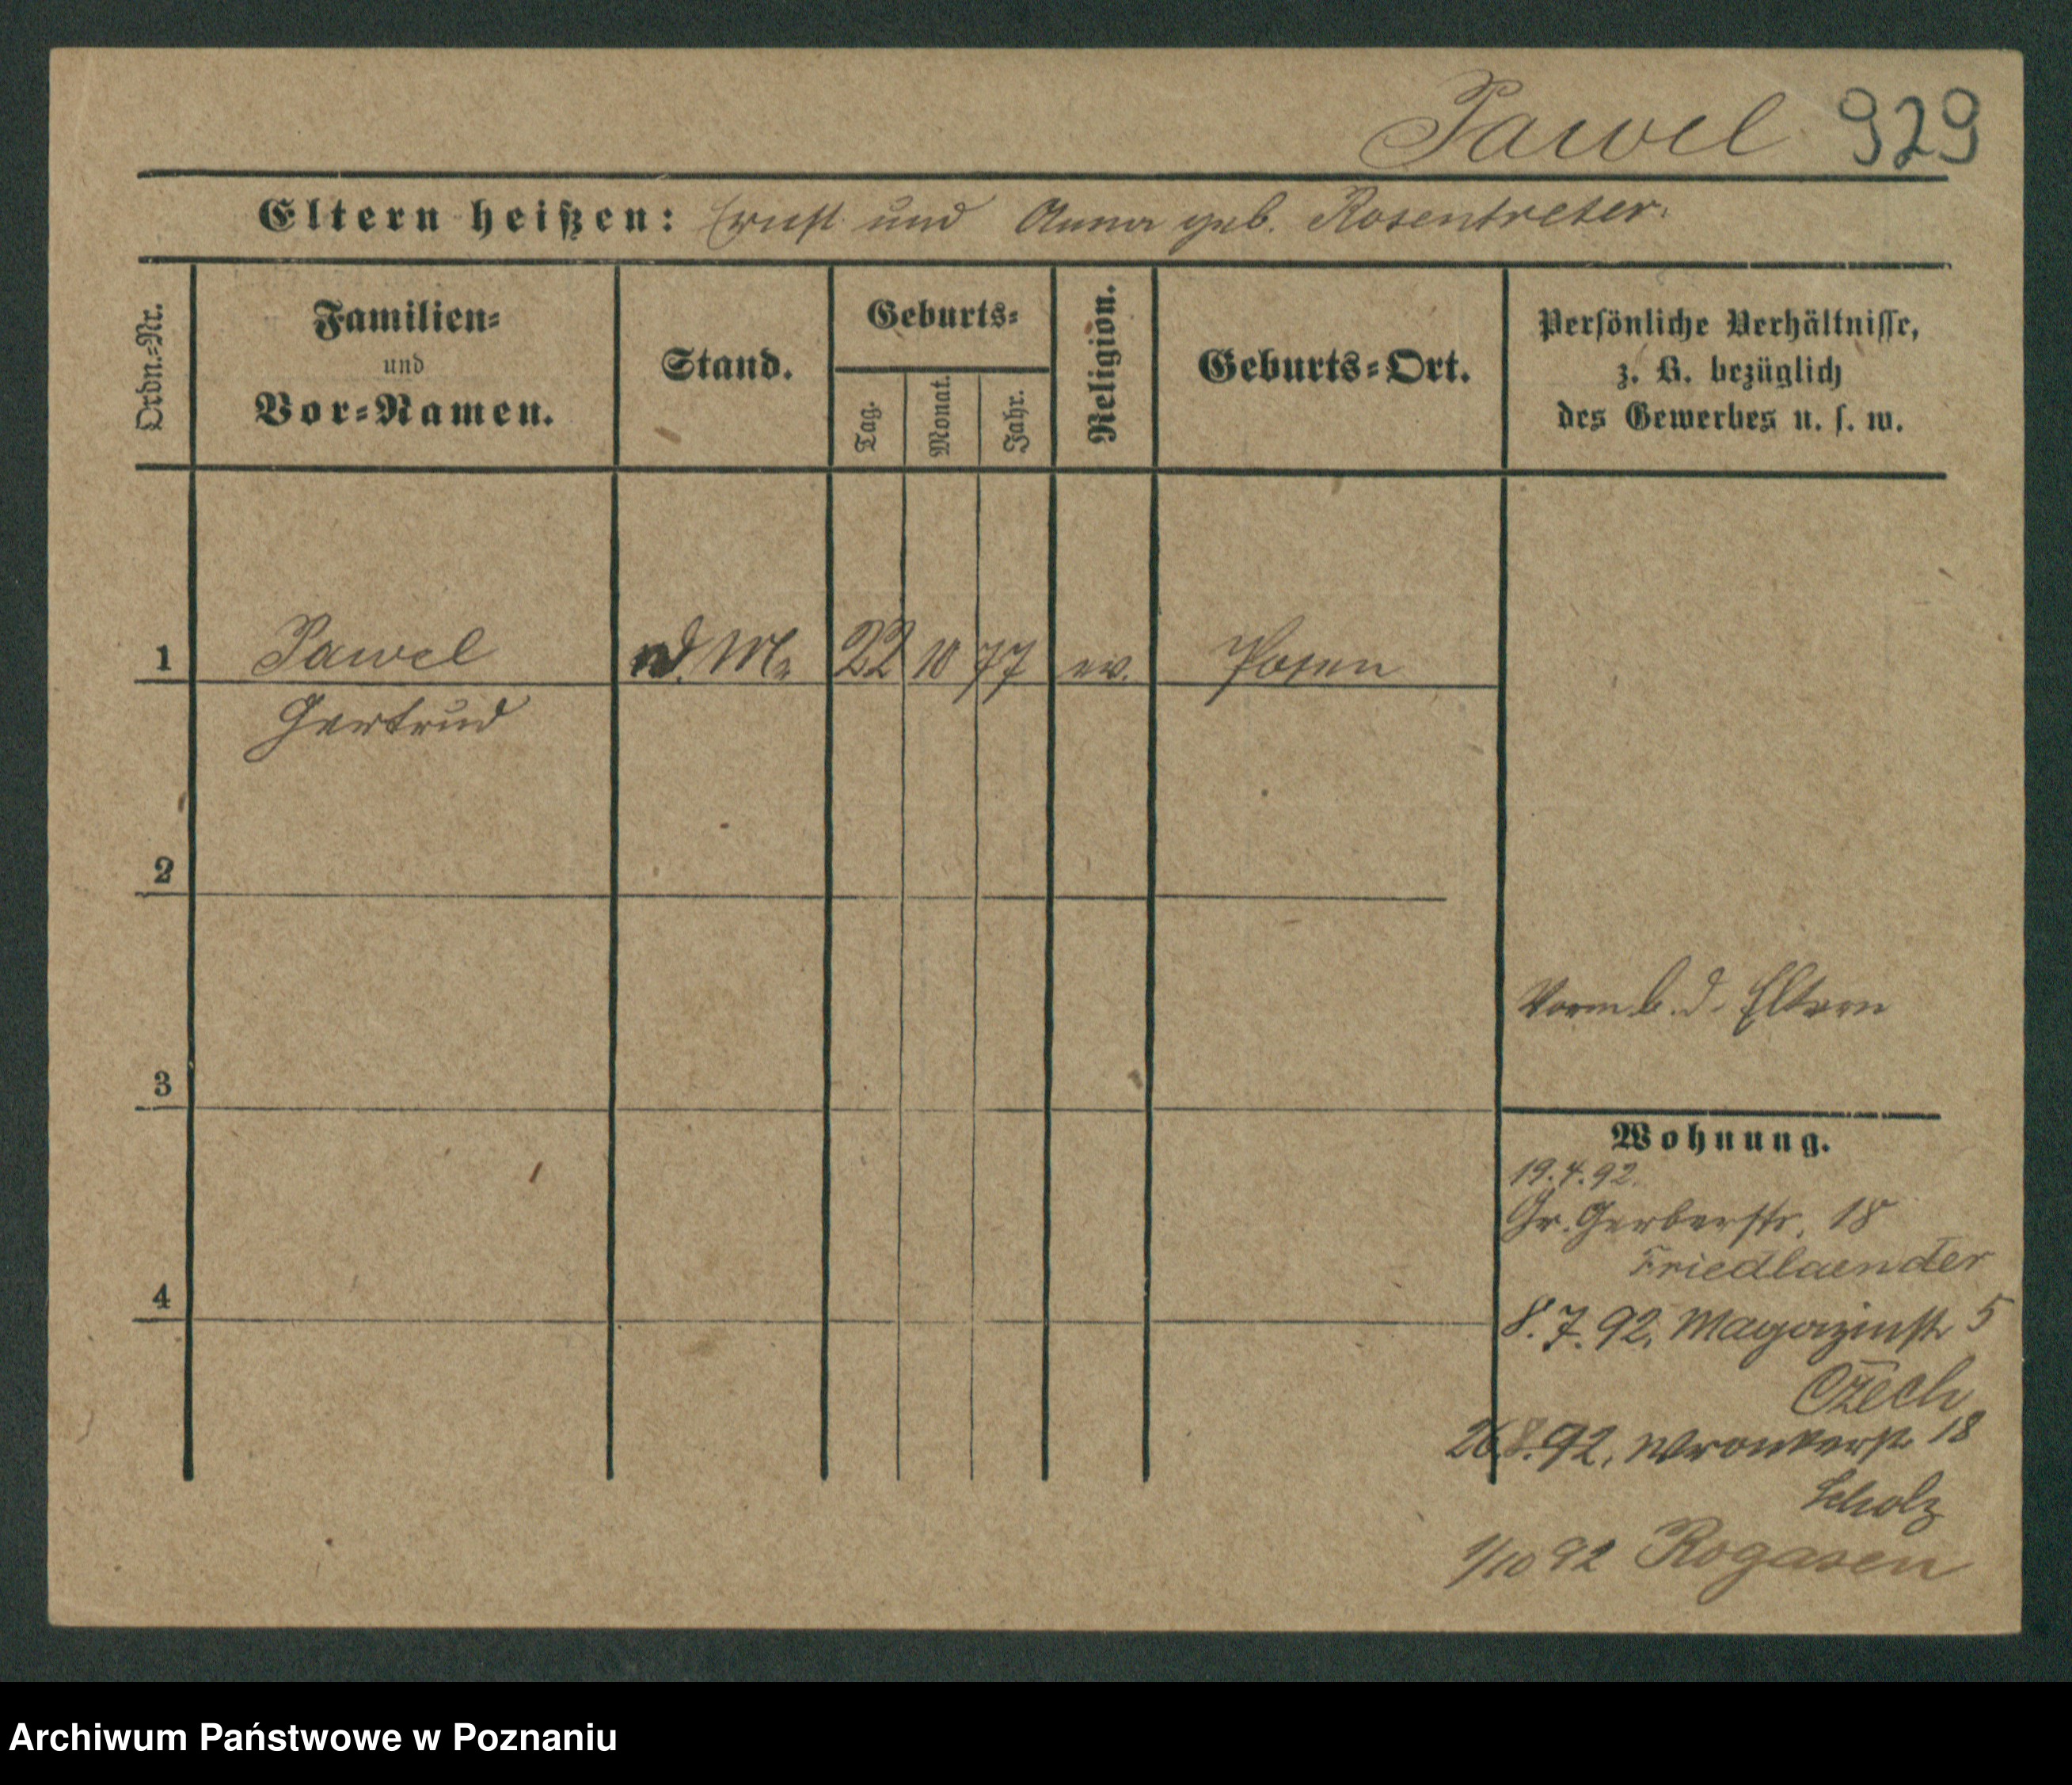 Pawel 929
Eltern heißen: Ernst und Anna geb. Rosentreter.
Ordn.=Nr.
Familien=
und
Vor=Namen.
Stand.
Geburts=
Tag.
Monat.
Jahr.
Religion.
Geburts=Ort.
Persönliche Verhältnisse,
z. B. bezüglich
des Gewerbes u. s. w.
1 Pawel 22 10 77 ev. Posen
Gertrud
2
3
4
Vorm. b. d. Eltern
Wohnung.
19.4.92.
Gr. Gerberstr. 18
Friedlaender
8.7.92, Magazinstr 5
Czech
26.8.92, Wronkerstr 18
Scholz
1/10 92 Rogasen
Archiwum Państwowe w Poznaniu